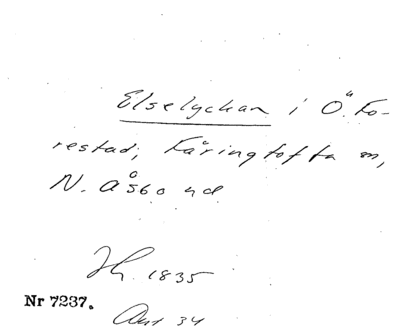 Elselyckan i Ö. Fo-
restad, Fåringtofta sn,
N. Åsbo hd
Jh. 1835
Nr 7237.
Avst 34